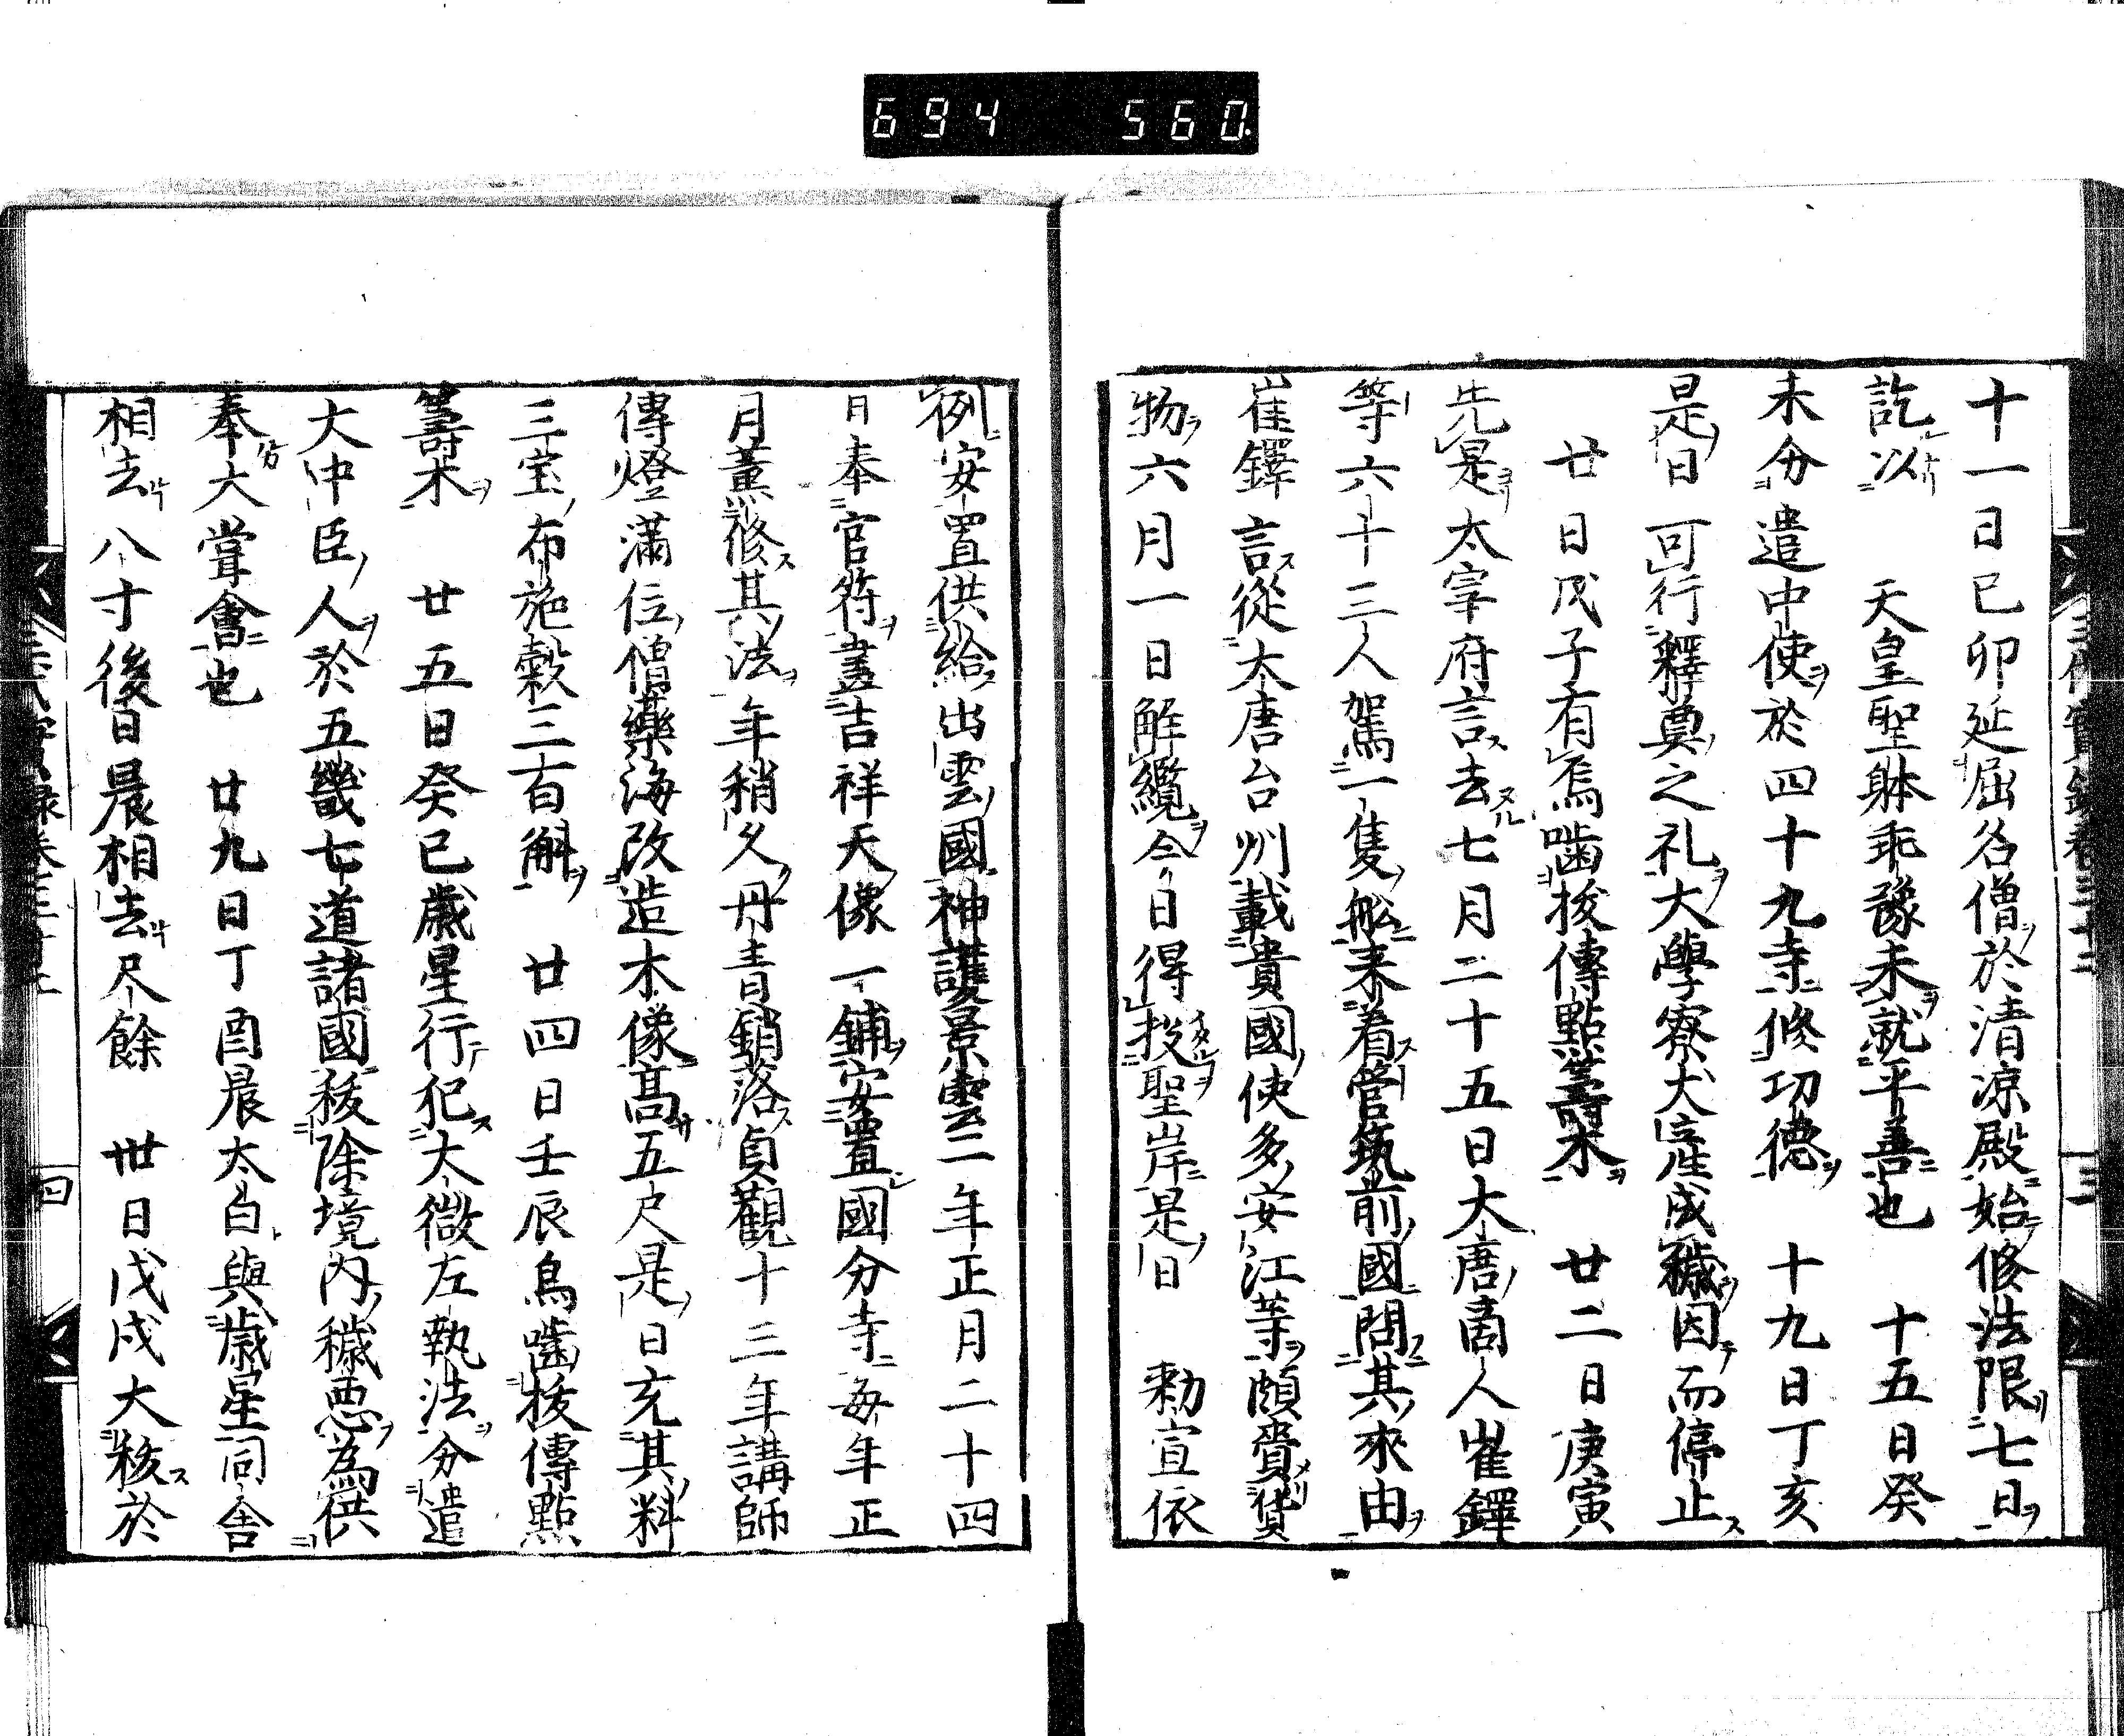 694 560.
十一日己卯延屈名僧於清凉殿始修法限七日
訖以 天皇聖躰乖豫未就平善也 十五日癸
未分遣中使於四十九寺修功德 十九日丁亥
是日可行釋奠之礼大學寮犬産成穢因而停止
廿日戊子有烏嚙拔傳點籌木 廿二日庚寅
先是太宰府言去七月二十五日大唐商人崔鐸
等六十三人駕一隻舩来着管筑前國問其來由
崔鐸言從大唐台州載貴國使多安江等頗賷貨
物六月一日解纜今日得投聖岸是日 勑宣依
例安置供給出雲國神護景雲二年正月二十四
日奉官符畫吉祥天像一鋪安置國分寺每年正
月薰修其法年稍久丹青銷落貞觀十三年講師
傳燈滿位僧藥海改造木像高五尺是日充其料
三宝布施穀三百斛 廿四日壬辰烏嚙拔傳點
籌木 廿五日癸巳歲星行犯太微左執法分遣
大中臣人於五畿七道諸國祓除境内穢惡為供
奉大甞會也 廿九日丁酉晨太白與歲星同舍
相去八寸後日晨相去尺餘 卅日戊戌大祓於
三代實錄卷三十
四